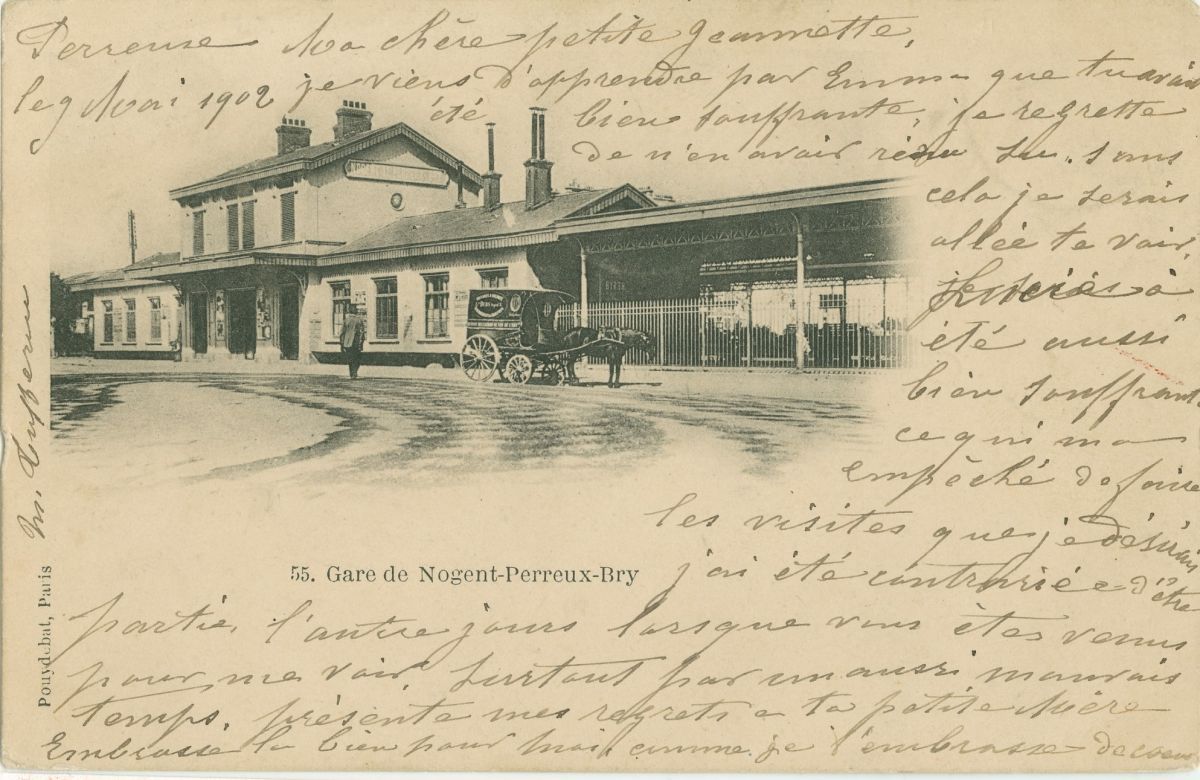 Perreuse Ma chère petite Jeannette,
le 9 Mai 1902 je viens d'apprendre par Emma que tu avais
été bien souffrante, je regrette
de n'en avoir rien su. sans
cela je serais
allée te voir,
à
été aussi
bien souffrant
ce qui ma
empêché de faire
les visites que je désirais
j'ai été contrariée d'être
partie, l'autre jours lorsque vous êtes venus
pour me voir, surtout par un aussi mauvais
temps, présente mes regrets a ta petite Mère
Embrasse la bien pour moi, comme je t'embrasse de coeur
M.
55. Gare de Nogent-Perreux-Bry
Pouydebat, Paris